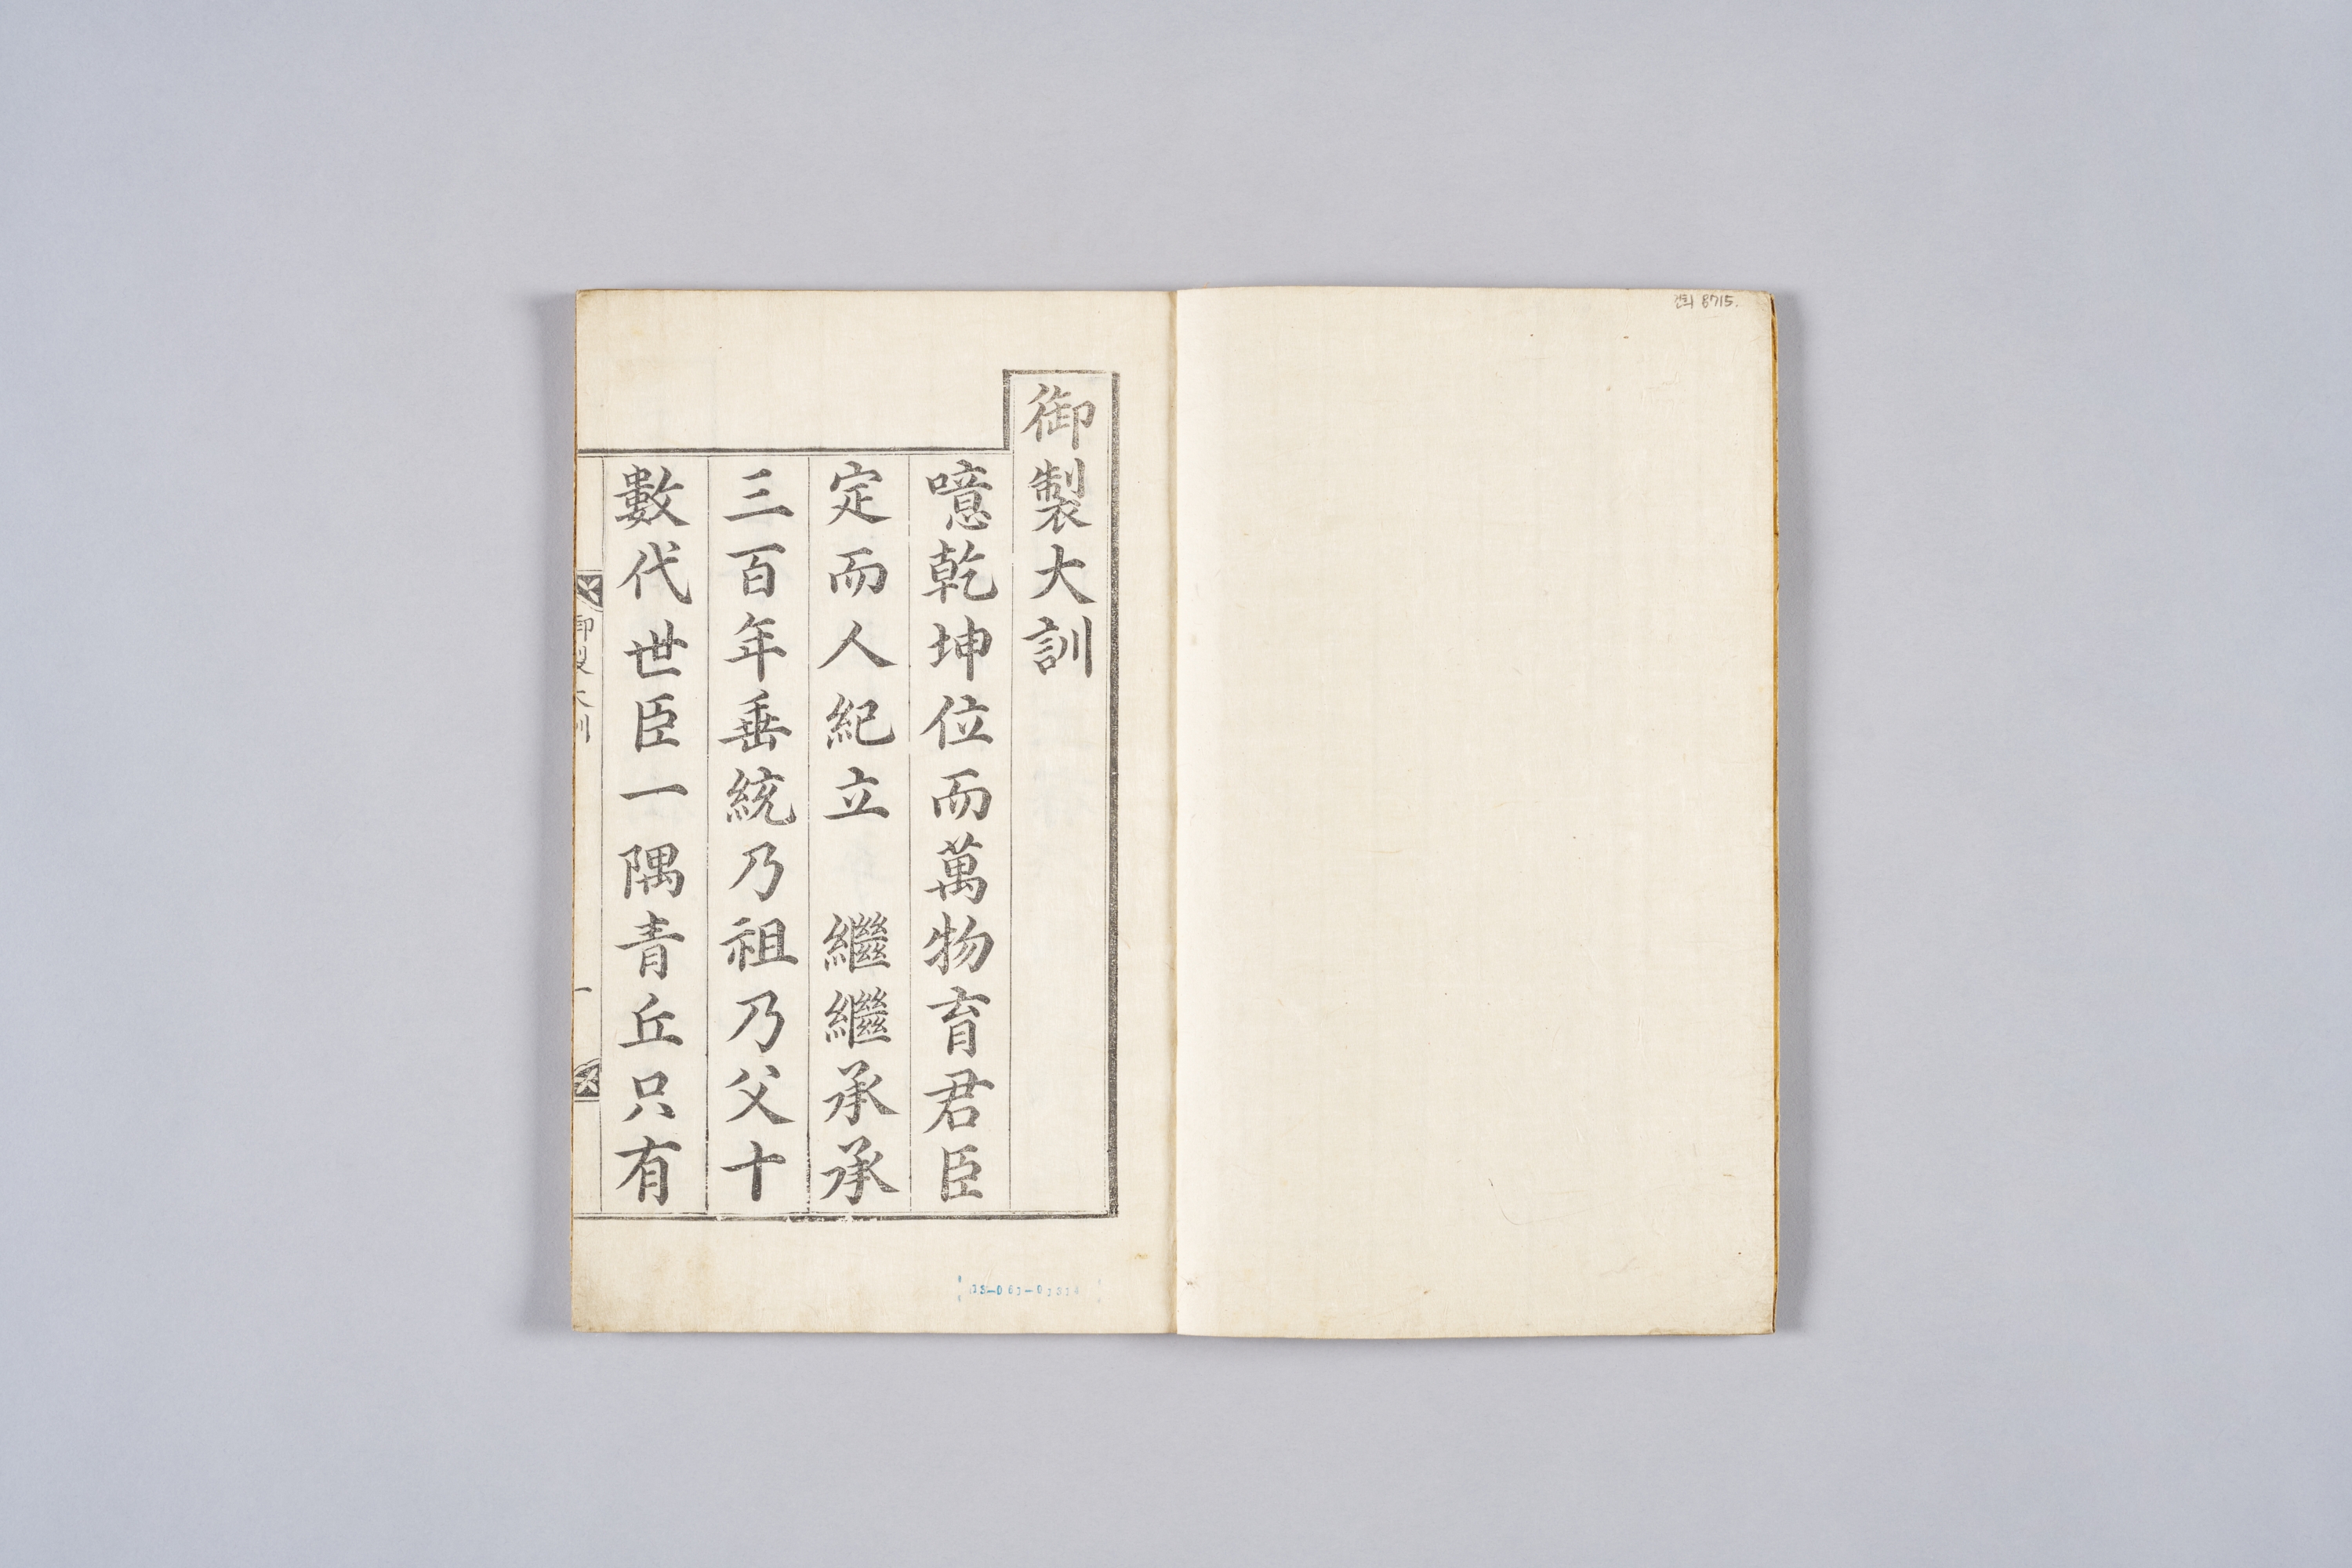 御製大訓
噫乾坤位而萬物育君臣
定而人紀立 繼繼承承
三百年垂統乃祖乃父十
數代世臣一隅青丘只有
御製大訓
一
8715.